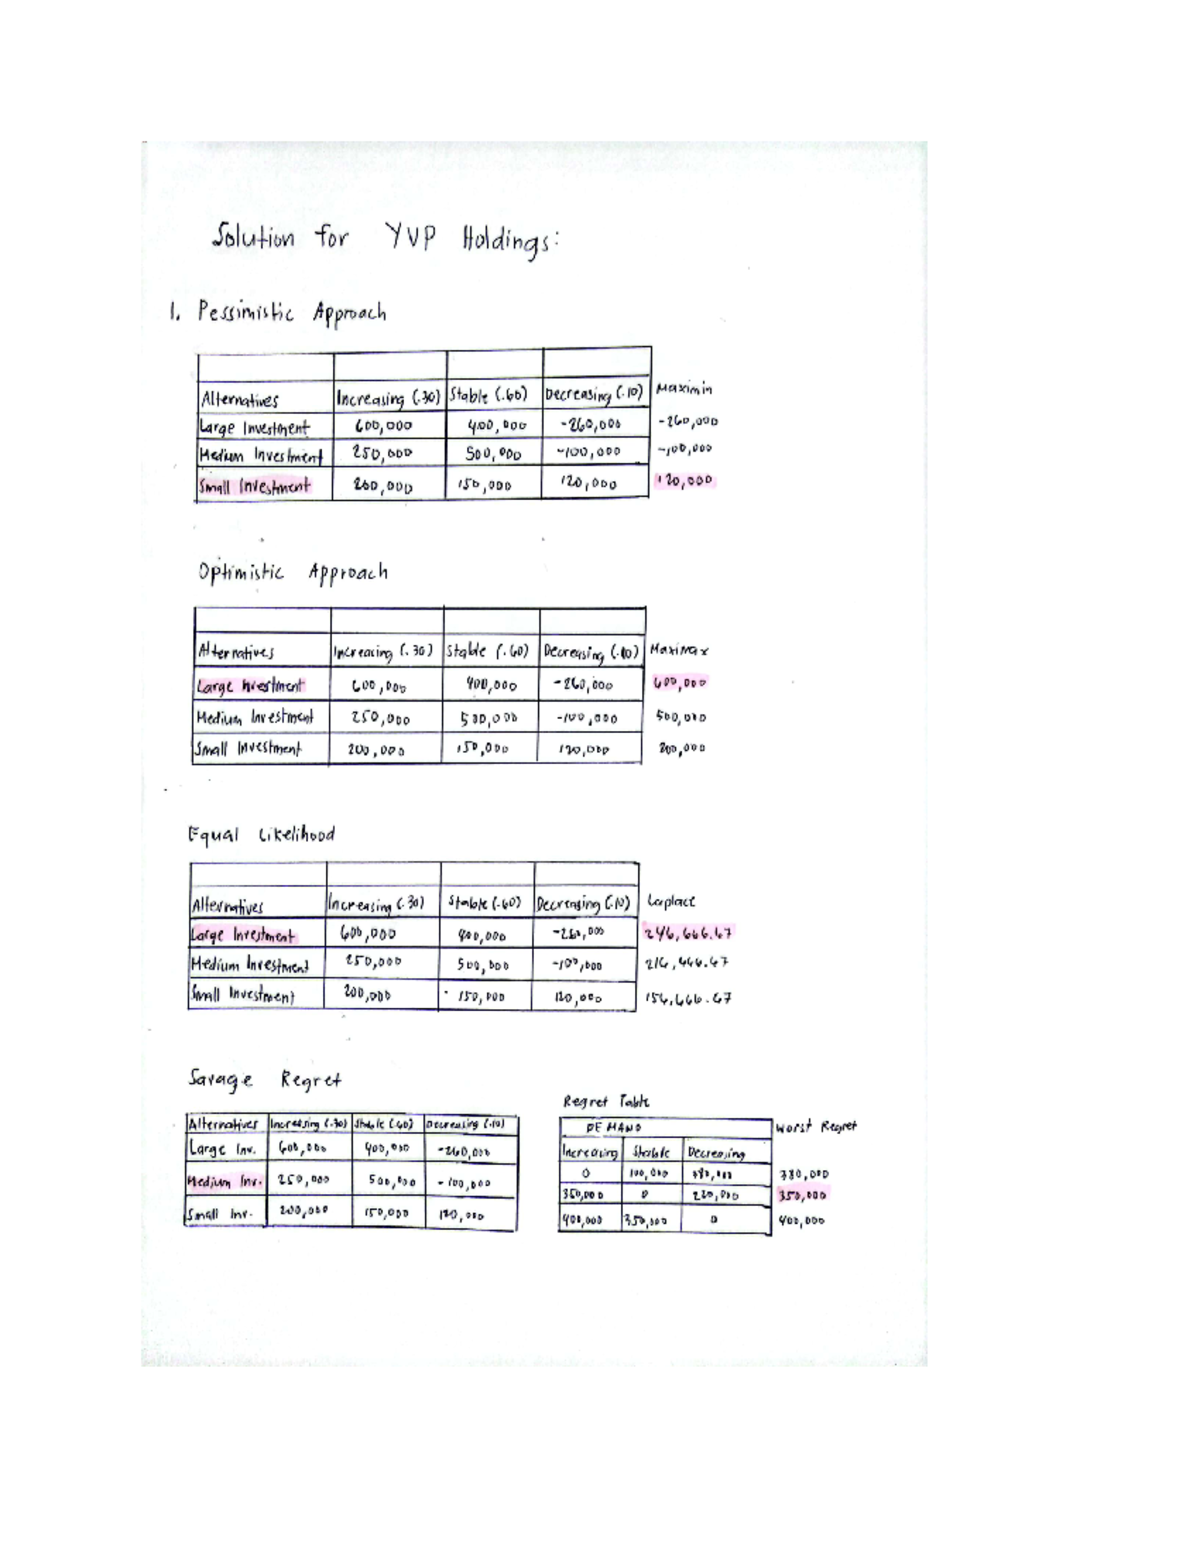 Solution for YVP Holdings:
1. Pessimistic Approach
Alternatives Increasing (.30) Stable (.60) Decreasing (.10) Maximin
Large Investment 600,000 400,000 -260,000 -260,000
Medium Investment 250,000 500,000 -100,000 -100,000
Small Investment 200,000 150,000 120,000 120,000
Optimistic Approach
Alternatives Increasing (.30) Stable (.60) Decreasing (.10) Maximax
Large Investment 600,000 400,000 -260,000 600,000
Medium Investment 250,000 500,000 -100,000 500,000
Small Investment 200,000 150,000 120,000 200,000
Equal Likelihood
Alternatives Increasing (.30) Stable (.60) Decreasing (.10) Laplace
Large Investment 600,000 400,000 -260,000 246,666.67
Medium Investment 250,000 500,000 -100,000 216,666.67
Small Investment 200,000 150,000 120,000 156,666.67
Savage Regret
Regret Table
Alternatives Increasing (.30) Stable (.60) Decreasing (.10)
Large Inv. 600,000 400,000 -260,000
Medium Inv. 250,000 500,000 -100,000
Small Inv. 200,000 150,000 120,000
DEMAND Worst Regret
Increasing Stable Decreasing
0 100,000 380,000 380,000
350,000 0 220,000 350,000
400,000 350,000 0 400,000